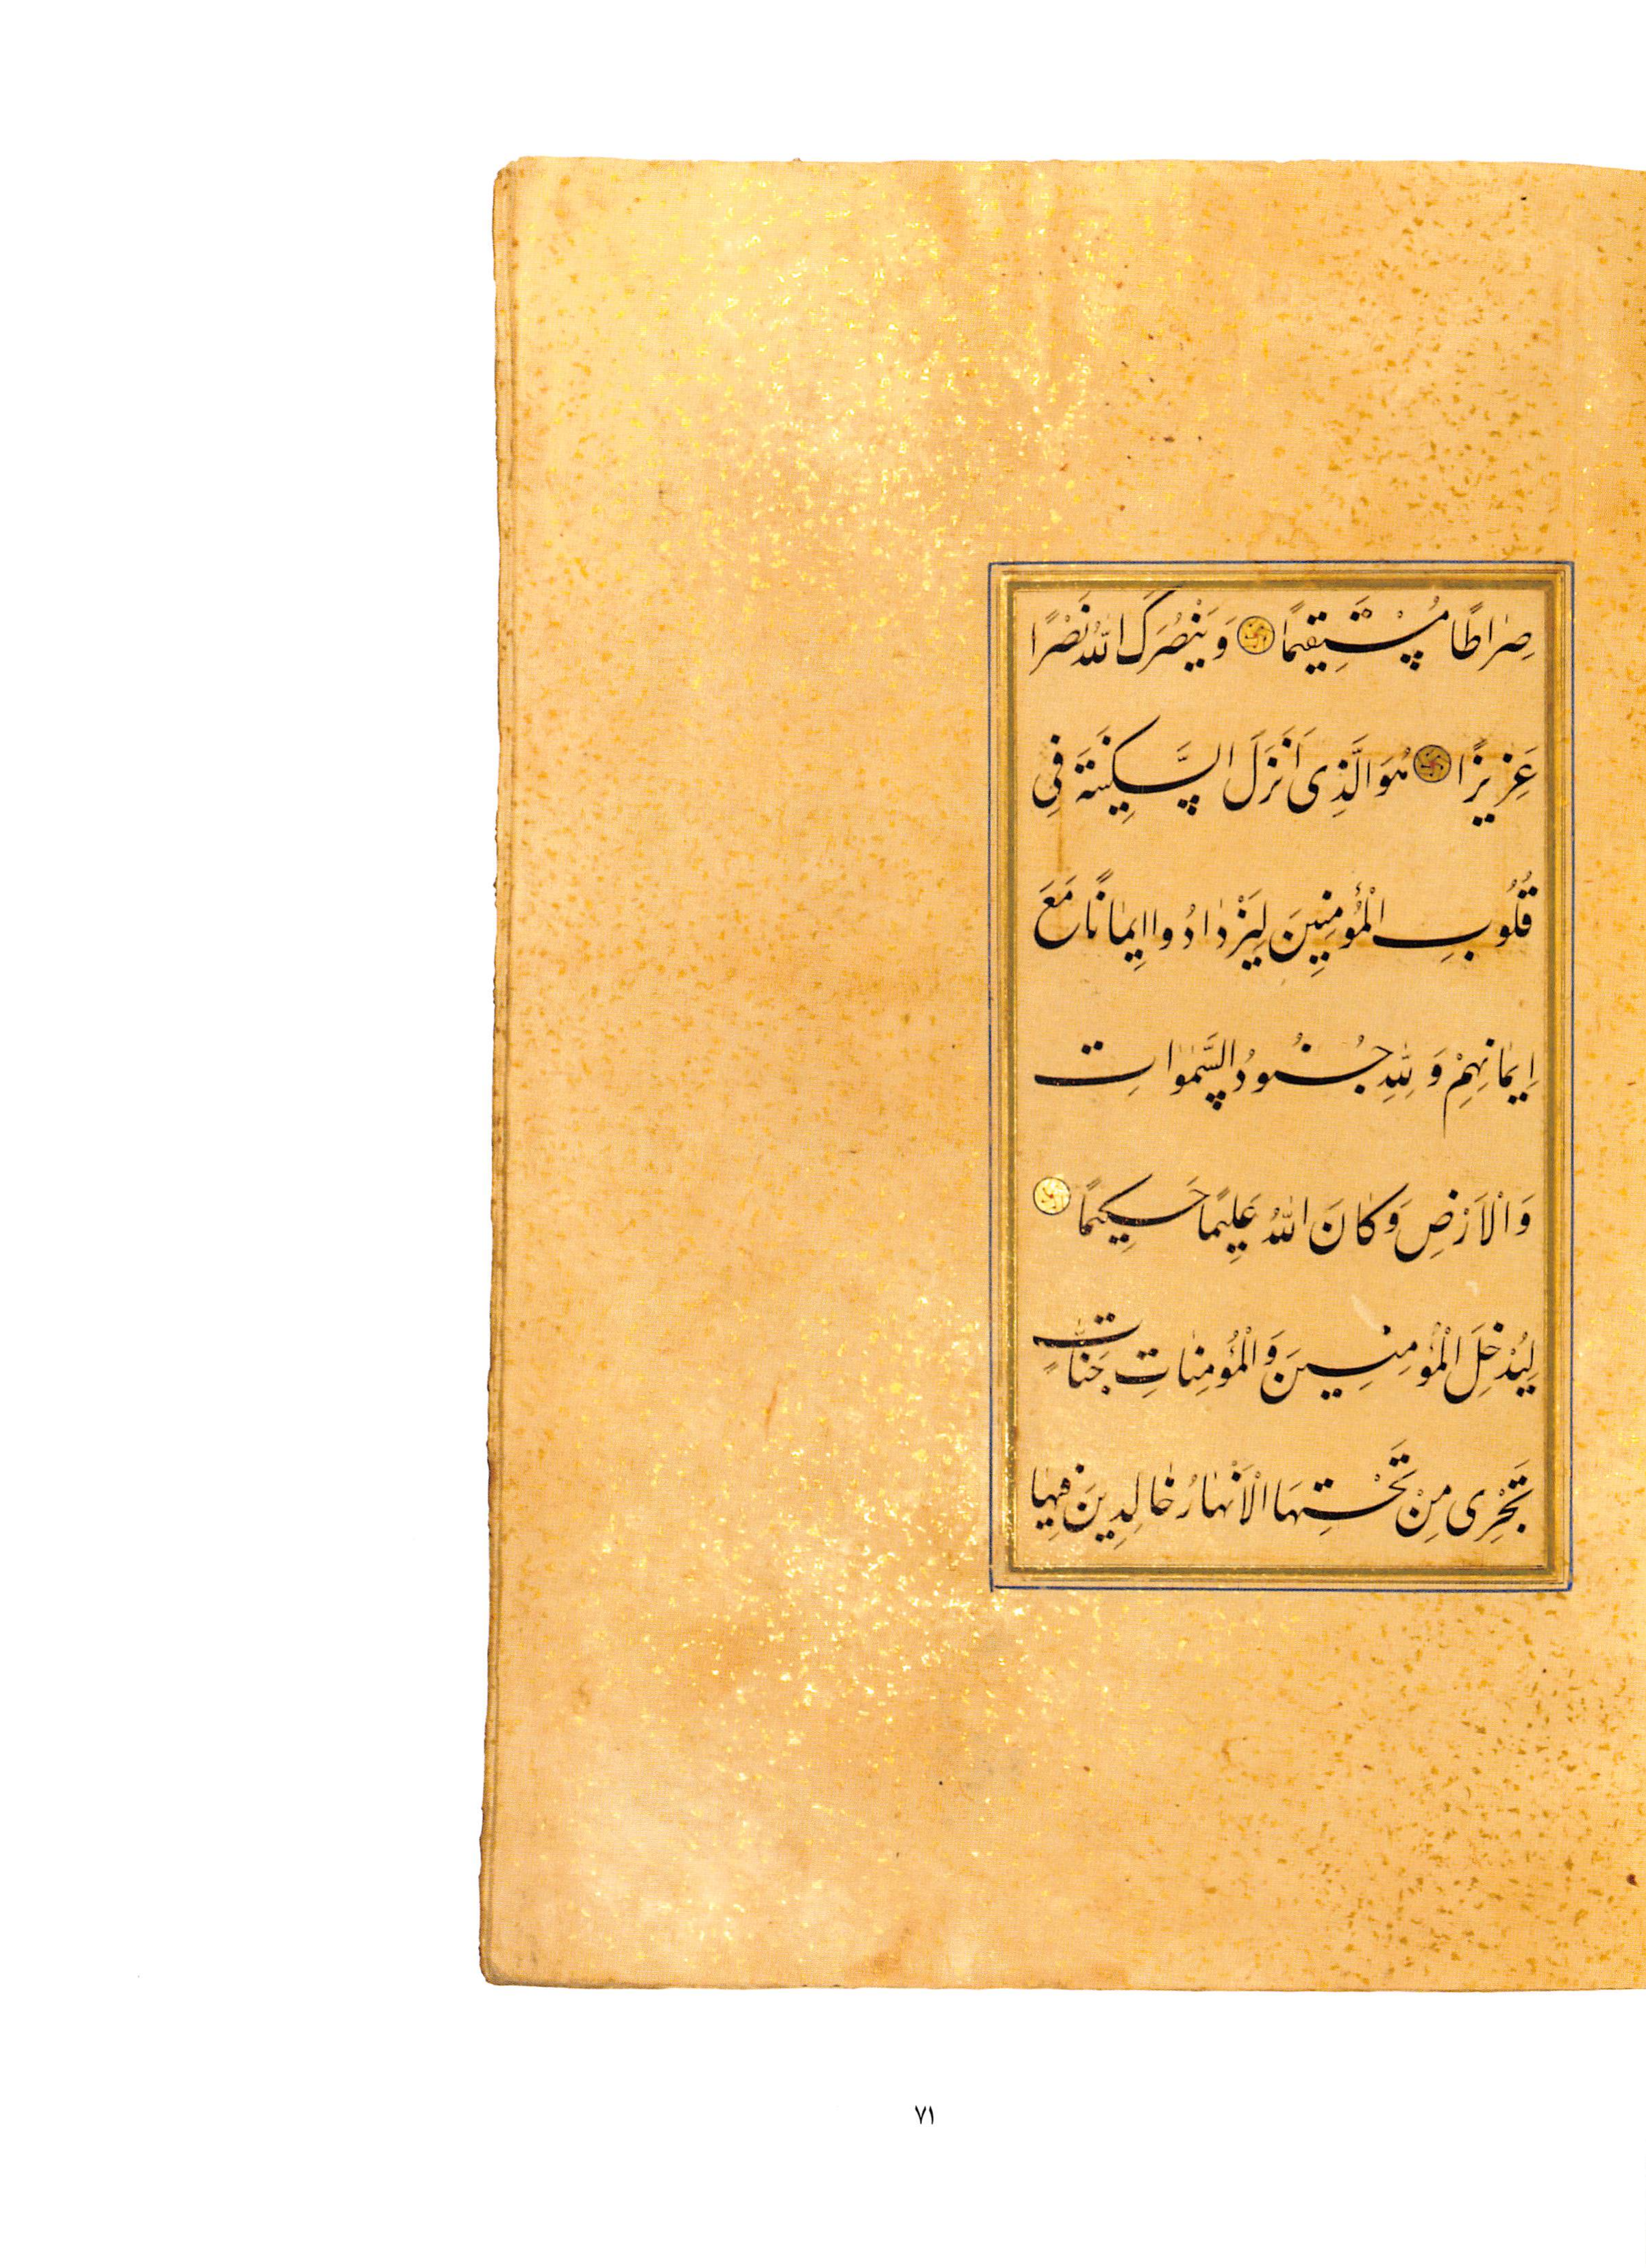 صِرَاطًا مُسْتَقِيمًا وَيَنْصُرَكَ اللهُ نَصْرًا
عَزِيزًا هُوَ الَّذِى اَنْزَلَ السَّكِينَةَ فِى
قُلُوبِ الْمُؤْمِنِينَ لِيَزْدَادُوا اِيمَانًا مَعَ
اِيمَانِهِمْ وَلِلّٰهِ جُنُودُ السَّمٰوَاتِ
وَالْاَرْضِ وَكَانَ اللهُ عَلِيمًا حَكِيمًا
لِيُدْخِلَ الْمُؤْمِنِينَ وَالْمُؤْمِنَاتِ جَنَّاتٍ
تَجْرِى مِنْ تَحْتِهَا الْاَنْهَارُ خَالِدِينَ فِيهَا
٧١